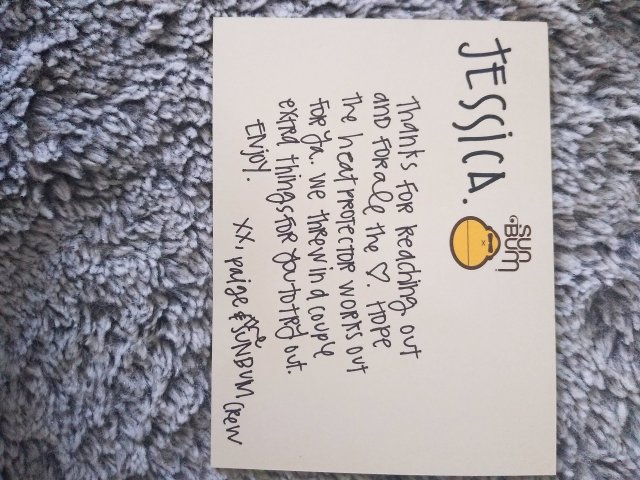 SUN
BUM
JESSICA.
Thanks for reaching out
and for all the ♡. Hope
the heat protector works out
for ya. We threw in a couple
extra things for you to try out.
Enjoy.
XX, paige & SUNBUM crew